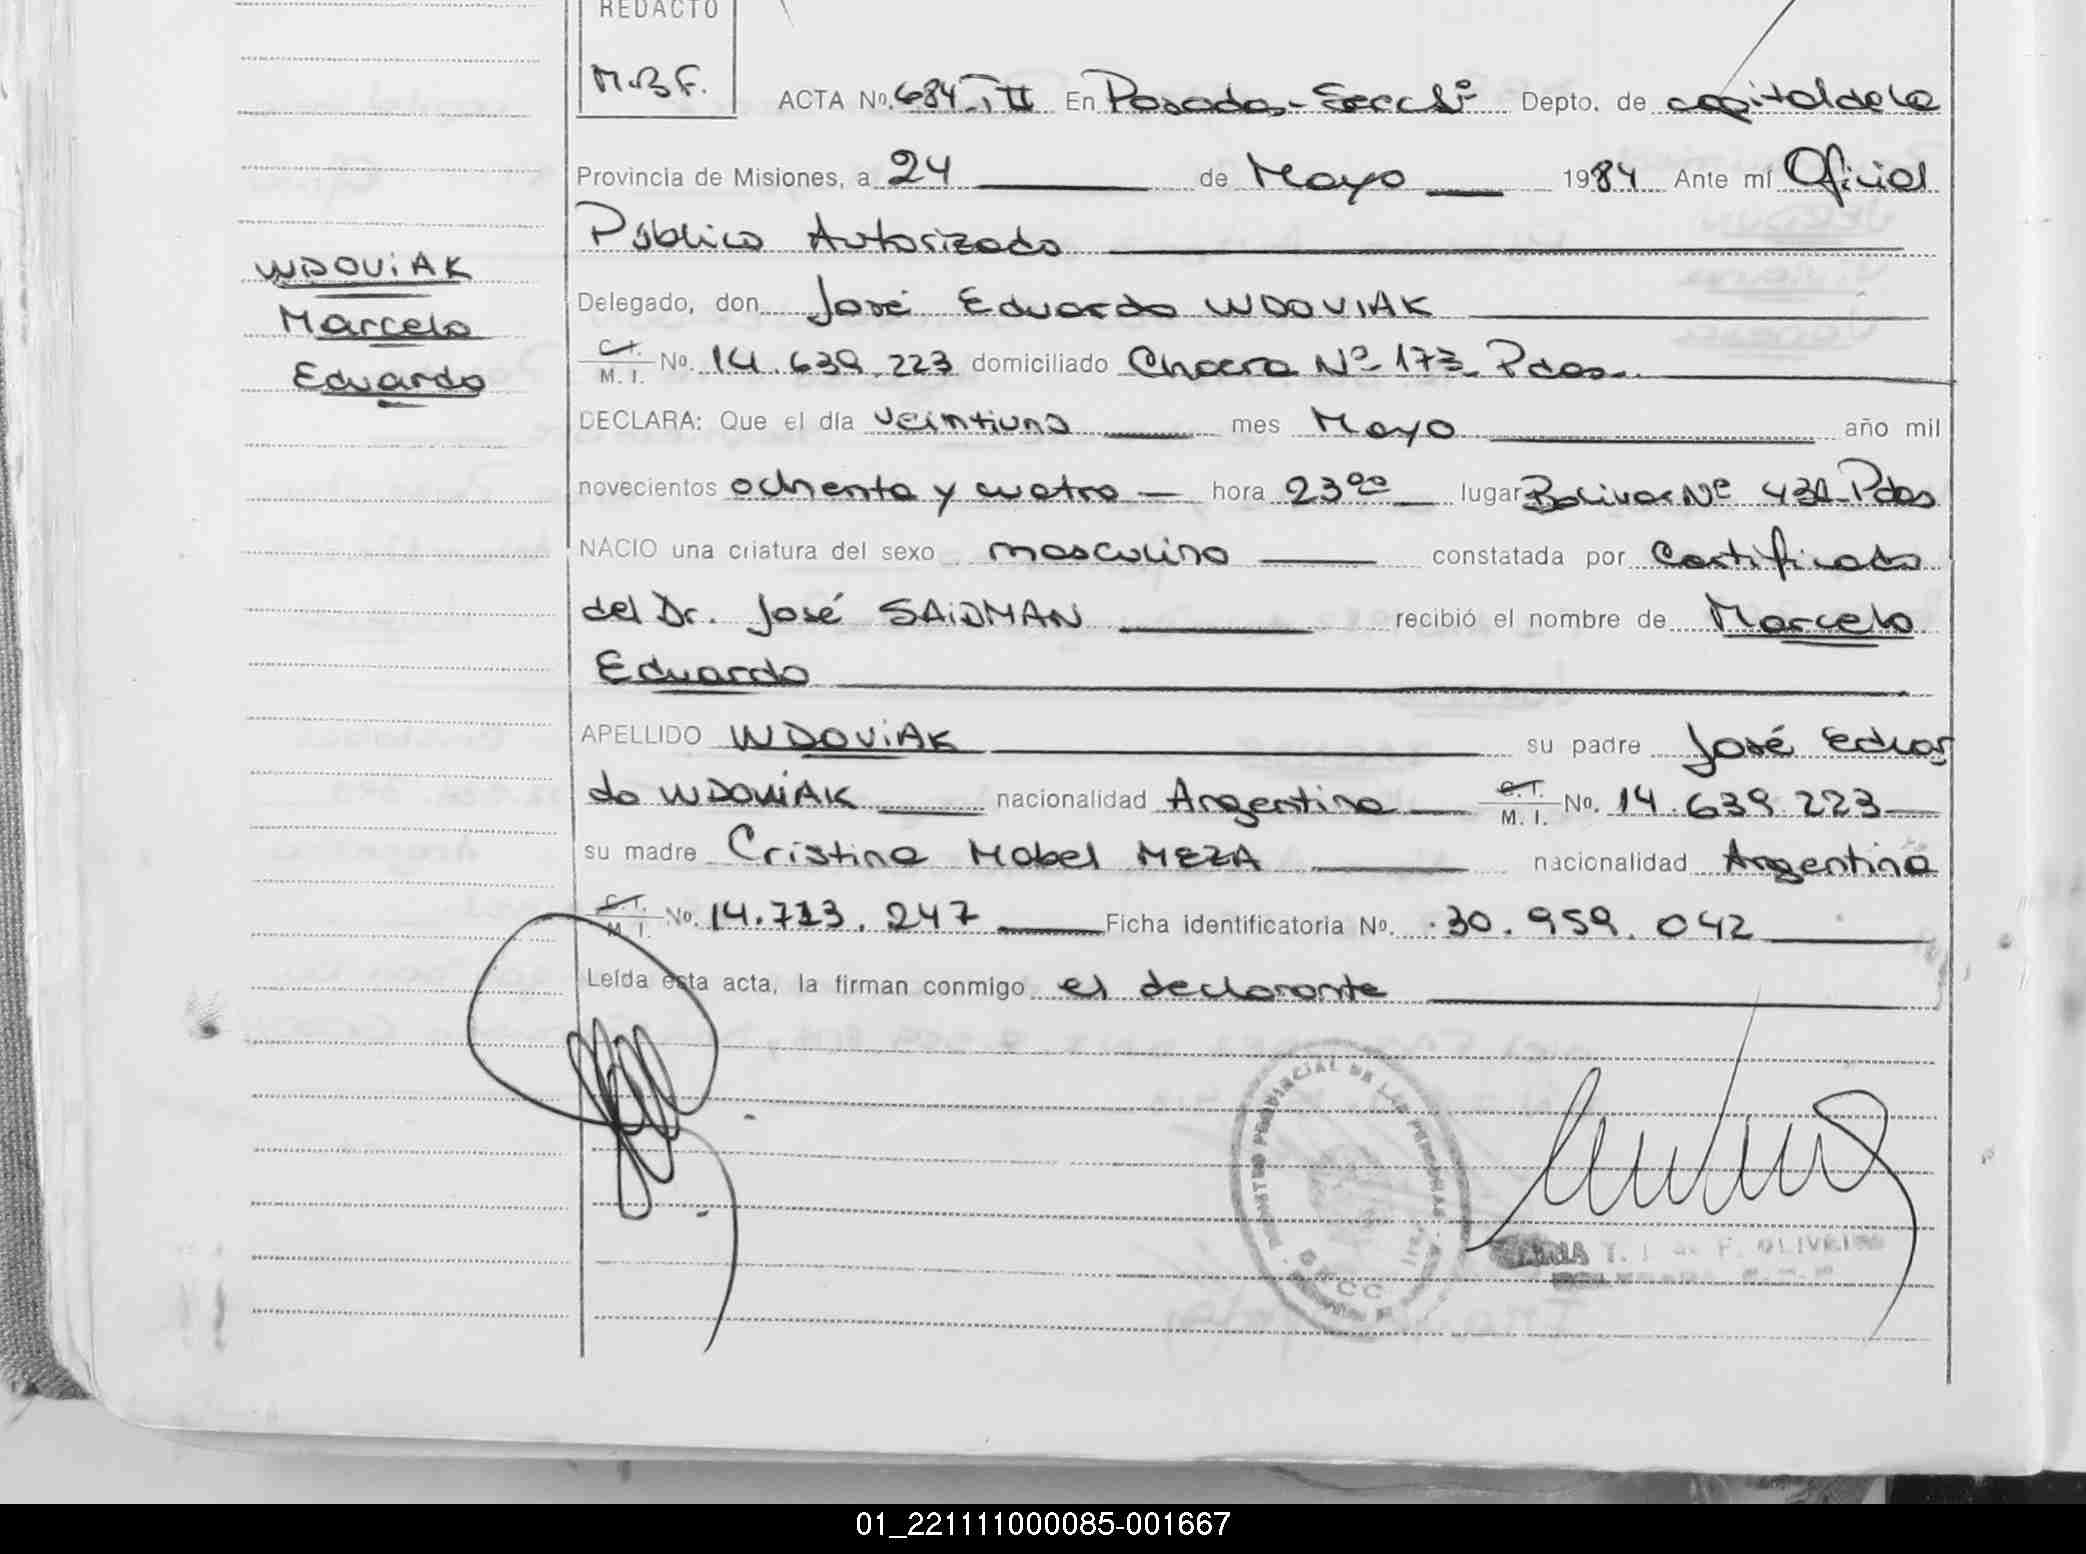 REDACTO
M.B.F.
ACTA Nº. 684 TII En Posadas - Secc 1ª Depto. de capital de la
Provincia de Misiones, a 24 de Mayo 1984 Ante mí Oficial
Público Autorizado
WDOViAK
Marcelo
Eduardo
Delegado, don José Eduardo WDOVIAK
C.I. M. I. No. 14.639.223 domiciliado Chacra Nº 173 Pdas.
DECLARA: Que el día veintiuno mes Mayo año mil
novecientos ochenta y cuatro hora 23ºº lugar Bolivar Nº 431 Pdas
NACIO una criatura del sexo masculino constatada por Certificado
del Dr. José SAiDMAN recibió el nombre de Marcelo
Eduardo
APELLIDO WDOViAK su padre José Eduar
do WDOViAK nacionalidad Argentina C.I. M. I. No. 14.639.223
su madre Cristina Mabel MEZA nacionalidad Argentina
C.I. M. I. No. 14.713.247 Ficha identificatoria No. 30.959.042
Leída esta acta, la firman conmigo el declarante
PROVINCIAL DE LAS PERSONAS
OLIVEIRA
01_221111000085-001667